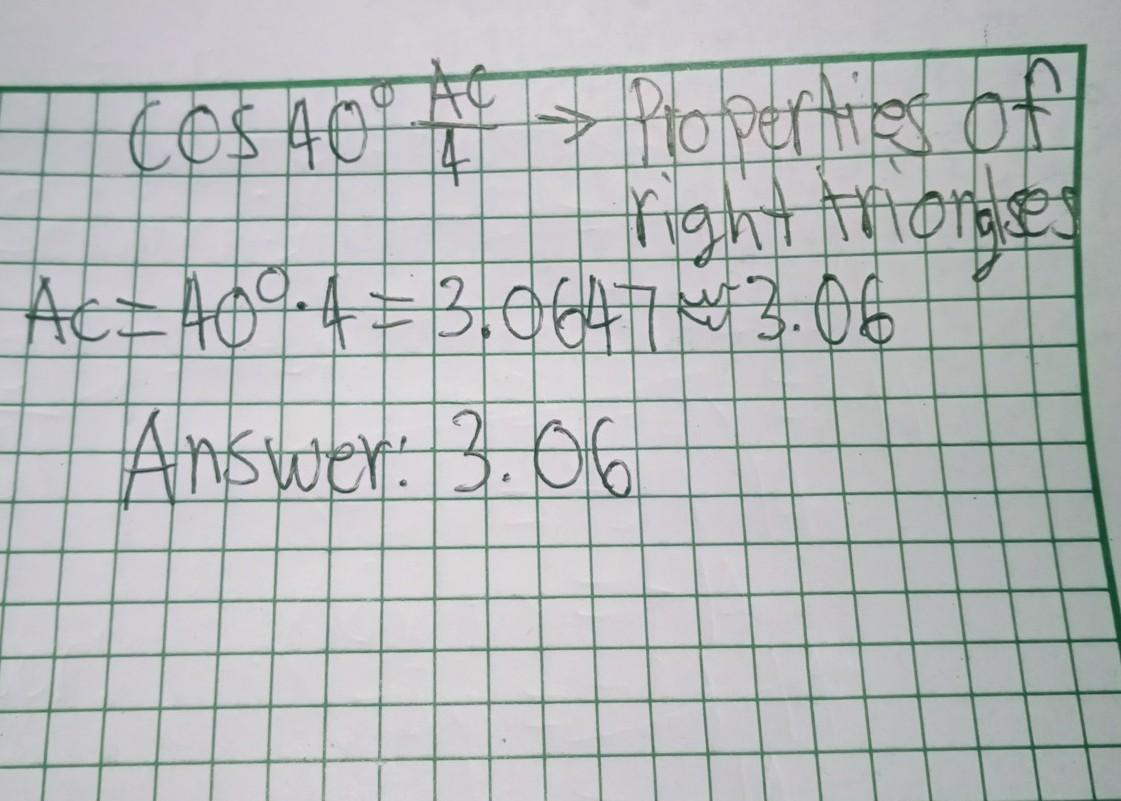 Cos 40° AC/4 → Properties of
right triongles
Ac = 40° · 4 = 3.0647 ≈ 3.06
Answer: 3.06